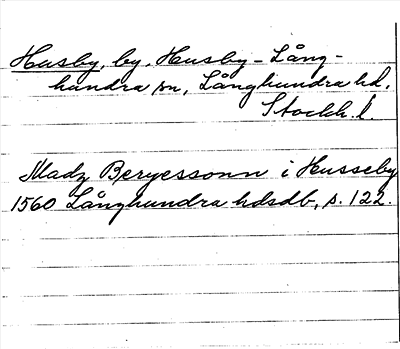 Husby, by, Husby-Lång-
hundra sn, Långhundra hd,
Stockh. l.
Madz Beryessonn i Husseby
1560 Långhundra hdsdb, s. 122.